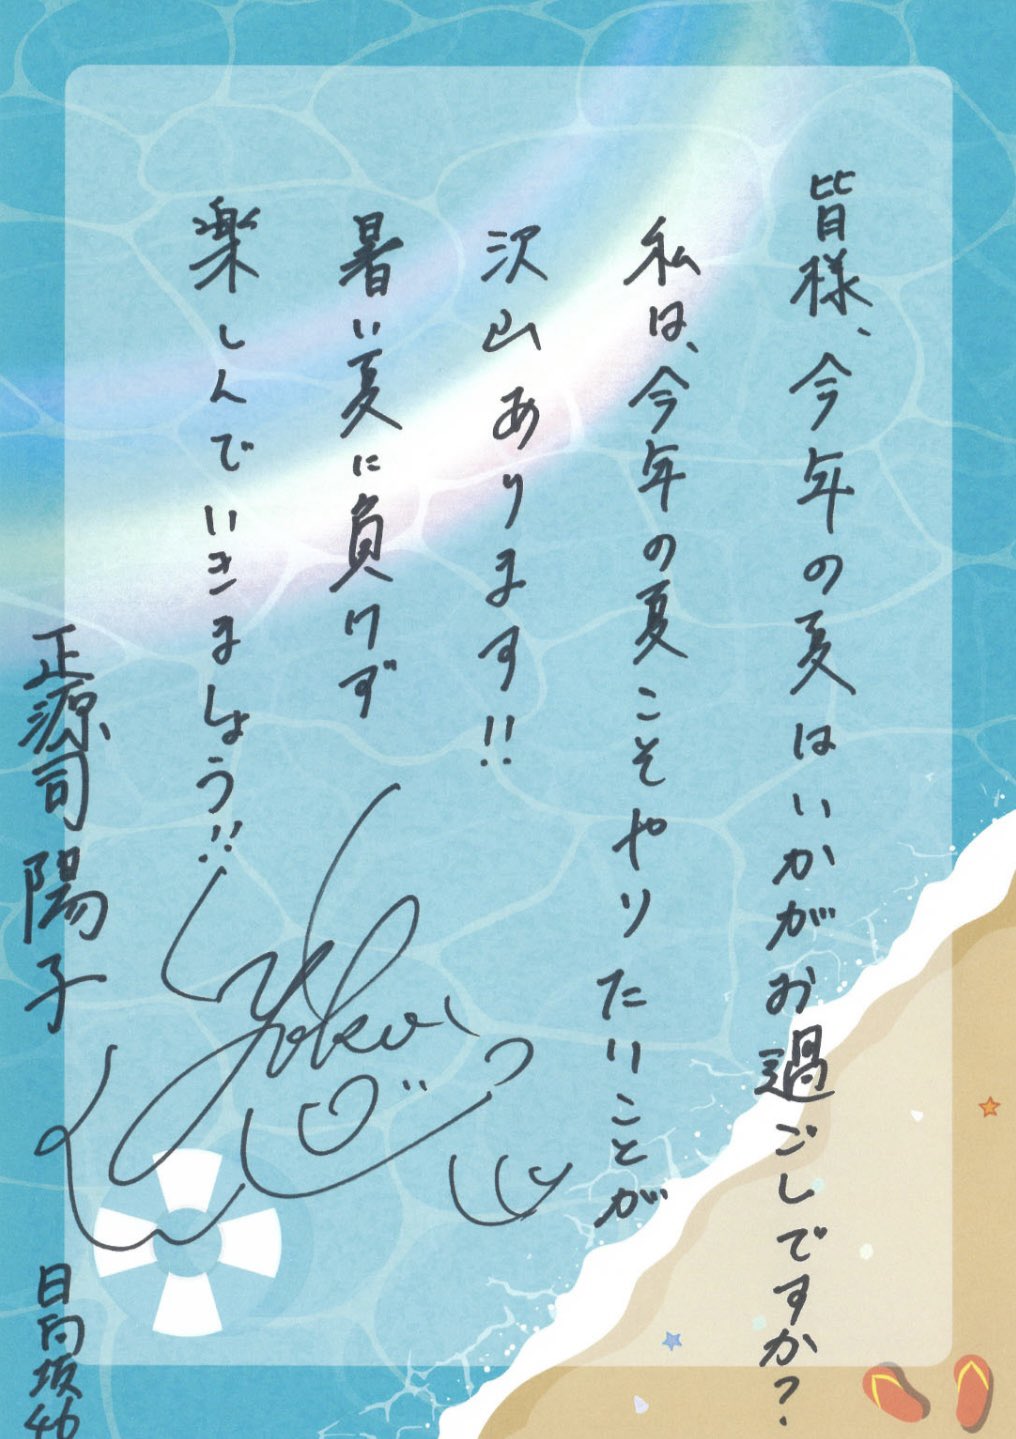 皆様、今年の夏はいかがお過ごしですか?
私は、今年の夏こそやりたいことが
沢山あります!!
暑い夏に負けず
楽しんでいきましょう!!
Yoko
正源司陽子
日向坂46